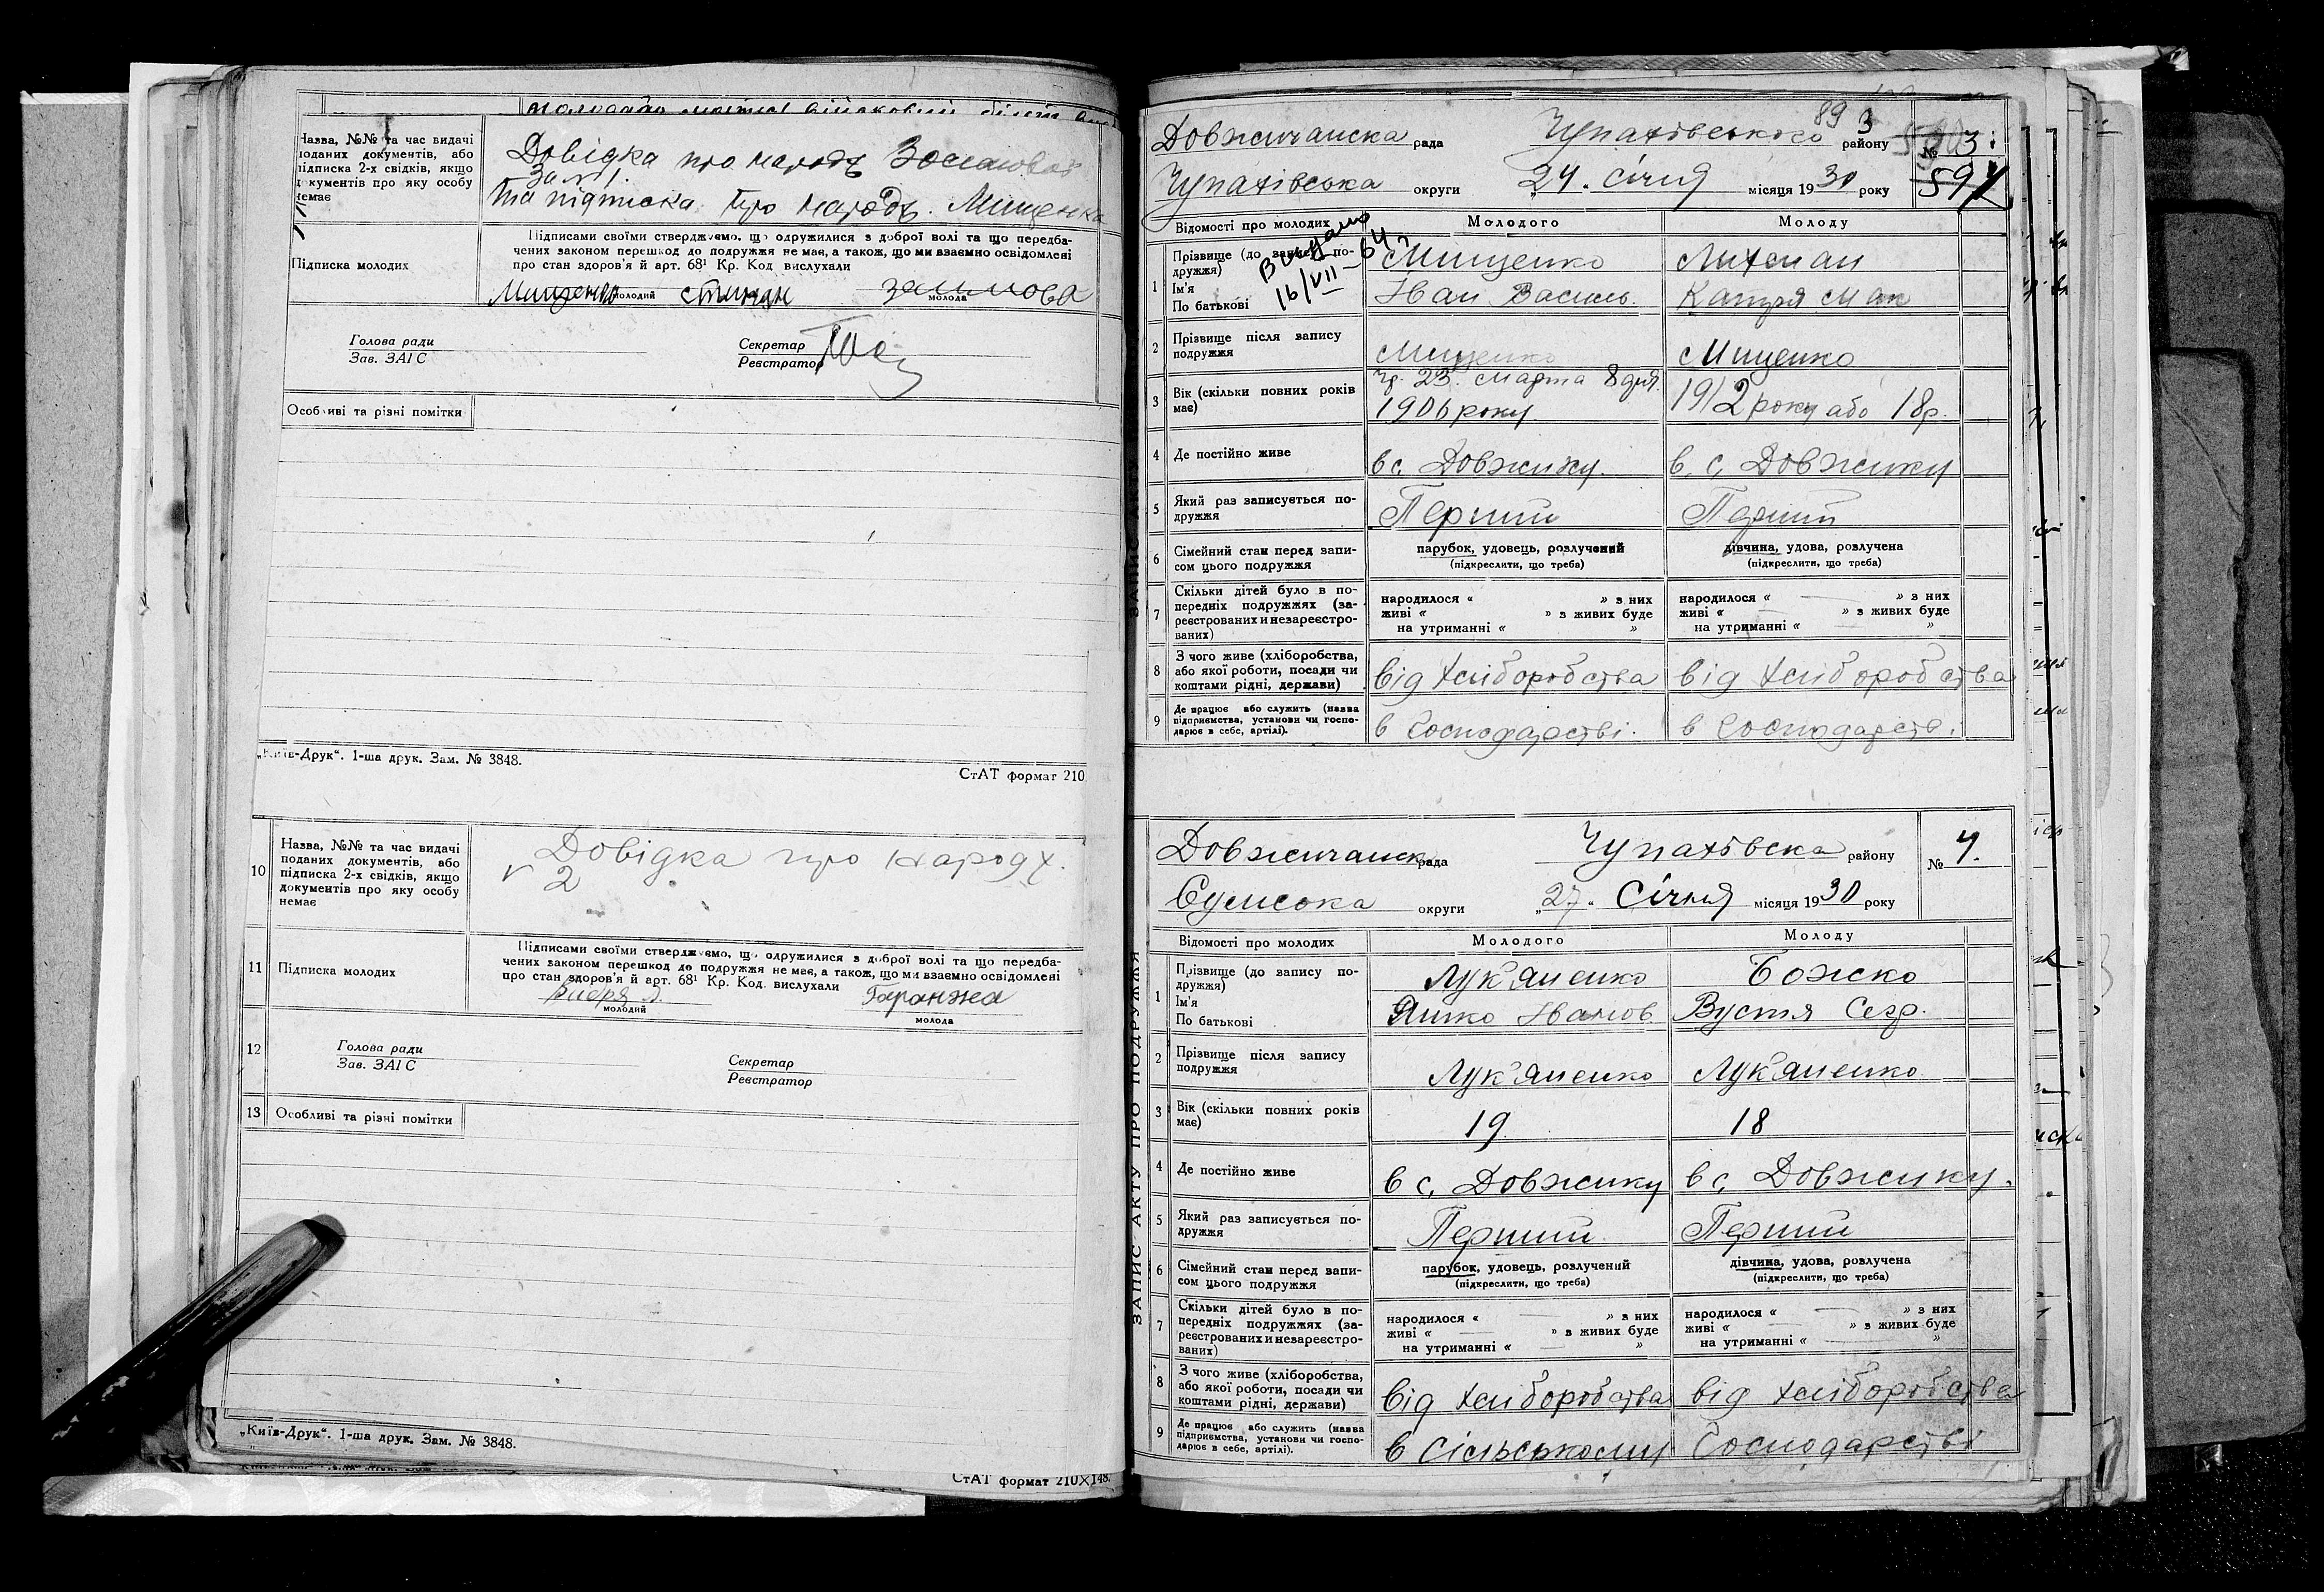 Назва, №№ та час видачі
поданих документів, або
підписка 2-х свідків, якщо
документів про яку особу
немає
Довідка про народж
за № 1.
та підписка про народж. Мищенка
Підписка молодих
Підписами своїми стверджуємо, що одружилися з доброї волі та що передба-
чених законом перешкод до подружжя не має, а також, що ми взаємно освідомлені
про стан здоров'я й арт. 68¹ Кр. Код вислухали
Мищенко
молодий
молода
Голова ради
Зав. ЗАГС
Секретар
Реєстратор
Особливі та різні помітки
„Київ-Друк“. 1-ша друк. Зам. № 3848.
СтАТ формат 210
10
Назва, №№ та час видачі
поданих документів, або
підписка 2-х свідків, якщо
документів про яку особу
немає
Довідка про народж.
2
11
Підписка молодих
Підписами своїми стверджуємо, що одружилися з доброї волі та що передба-
чених законом перешкод до подружжя не має, а також, що ми взаємно освідомлені
про стан здоров'я й арт. 68¹ Кр. Код. вислухали
Гаранжа
молодий
молода
12
Голова ради
Зав. ЗАГС
Секретар
Реєстратор
13 Особливі та різні помітки
„Київ-Друк“. 1-ша друк. Зам. № 3848.
СтАТ формат 210×148.
89 3
Довжичанска рада Чупахівського району № 3
Чупахівська округи „24. січня місяця 1930 року
597
Відомості про молодих Молодого Молоду
Видано
16/VII-64 г
1
Прізвище (до запису по-
дружжя)
Ім'я
По батькові
Мищенко
Іван Василь.
Катря Мак
2
Прізвище після запису
подружжя
Мищенко
Мищенко
3
Вік (скільки повних років
має)
23. марта 8 дня.
1906 року.
1912 року або 18 р.
4
Де постійно живе
в с. Довжику.
в. с. Довжику
5
Який раз записується по-
дружжя
Перший
Перший
6
Сімейний стан перед запи-
сом цього подружжя
парубок, удовець, розлучений
(підкреслити, що треба)
дівчина, удова, розлучена
(підкреслити, що треба)
7
Скільки дітей було в по-
передніх подружжях (за-
реєстрованих и незареєстро-
ваних)
народилося « » з них
живі « » з живих буде
на утриманні « »
народилося « » з них
живі « » з живих буде
на утриманні « »
8
З чого живе (хліборобства,
або якої роботи, посади чи
коштами рідні, держави)
від хліборобства
від хліборобства
9
Де працює або служить (назва
підприємства, установи чи госпо-
дарює в себе, артілі).
в Господарстві.
в Господарств.
Довжичанск рада Чупахівска району № 4.
Сумська округи „27“ Січня місяця 1930 року
Відомості про молодих Молодого Молоду
ЗАПИС АКТУ ПРО ПОДРУЖЖЯ
1
Прізвище (до запису по-
дружжя)
Ім'я
По батькові
Лук'яненко
Яшко Іванов.
Божко
Вустя Сер.
2
Прізвище після запису
подружжя
Лук'яненко
Лук'яненко
3
Вік (скільки повних років
має)
19
18
4
Де постійно живе
в с. Довжику
в с. Довжику.
5
Який раз записується по-
дружжя
Перший
Перший
6
Сімейний стан перед запи-
сом цього подружжя
парубок, удовець, розлучений
(підкреслити, що треба)
дівчина, удова, розлучена
(підкреслити, що треба)
7
Скільки дітей було в по-
передніх подружжях (за-
реєстрованих и незареєстро-
ваних)
народилося « » з них
живі « » з живих буде
на утриманні « »
народилося « » з них
живі « » з живих буде
на утриманні « »
8
З чого живе (хліборобства,
або якої роботи, посади чи
коштами рідні, держави)
від хліборобства
від хліборобства
9
Де працює або служить (назва
підприємства, установи чи госпо-
дарює в себе, артілі).
в сільському Господарстві